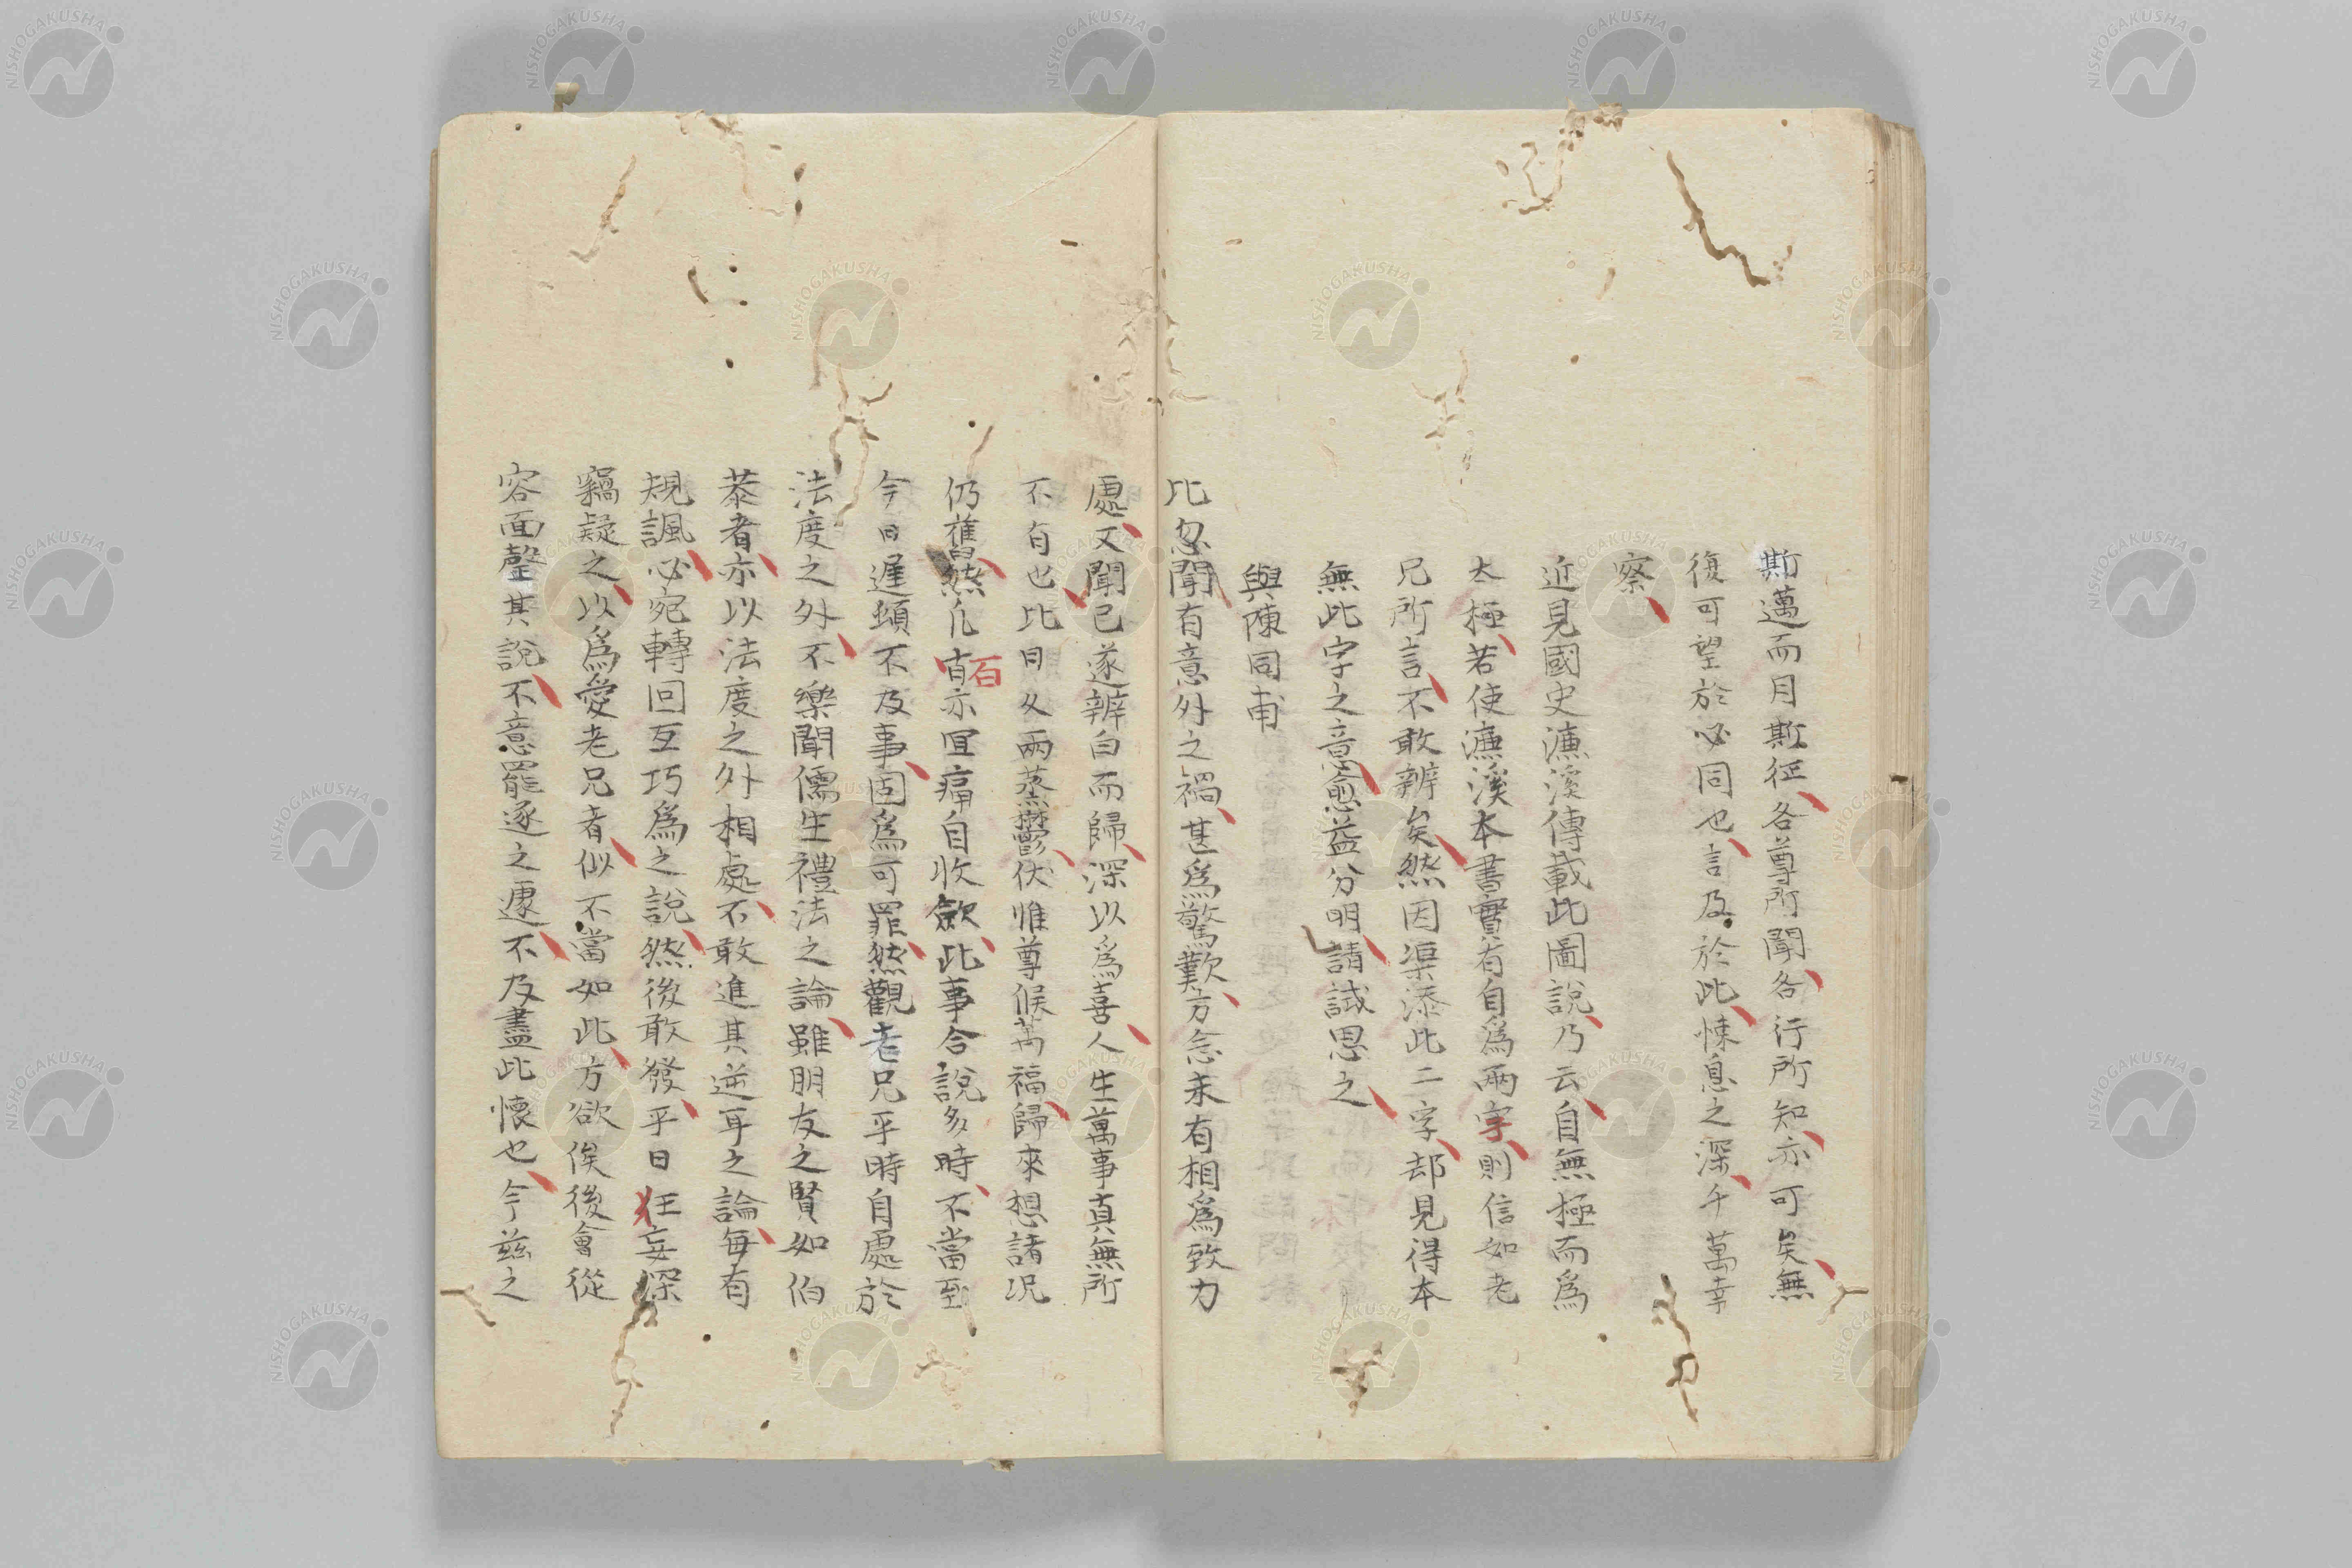 斯邁而月斯征各尊所聞各行所知亦可矣無
復可望於必同也言及於此悚息之深千萬幸
察
近見國史濂溪傳載此圖說乃云自無極而爲
太極若使濂溪本書實有自爲兩字則信如老
兄所言不敢辨矣然因渠添此二字却見得本
無此字之意愈益分明請試思之
與陳同甫
比忽聞有意外之禍甚爲驚歎方念未有相爲致力
處又聞已遂辨白而歸深以爲喜人生萬事真無所
不有也比日久雨蒸鬱伏惟尊候萬福歸來想諸况
仍舊然凡百亦宜痛自收斂此事合說多時不當至
今日遲頓不及事固爲可罪然觀老兄平時自處於
法度之外不樂聞儒生禮法之論雖朋友之賢如伯
恭者亦以法度之外相處不敢進其逆耳之論每有
規諷必宛轉回互巧爲之說然後敢發平日狂妄深
竊疑之以爲愛老兄者似不當如此方欲俟後會從
容面罄其說不意罷逐之遽不及盡此懷也今茲之
百
NISHOGAKUSHA